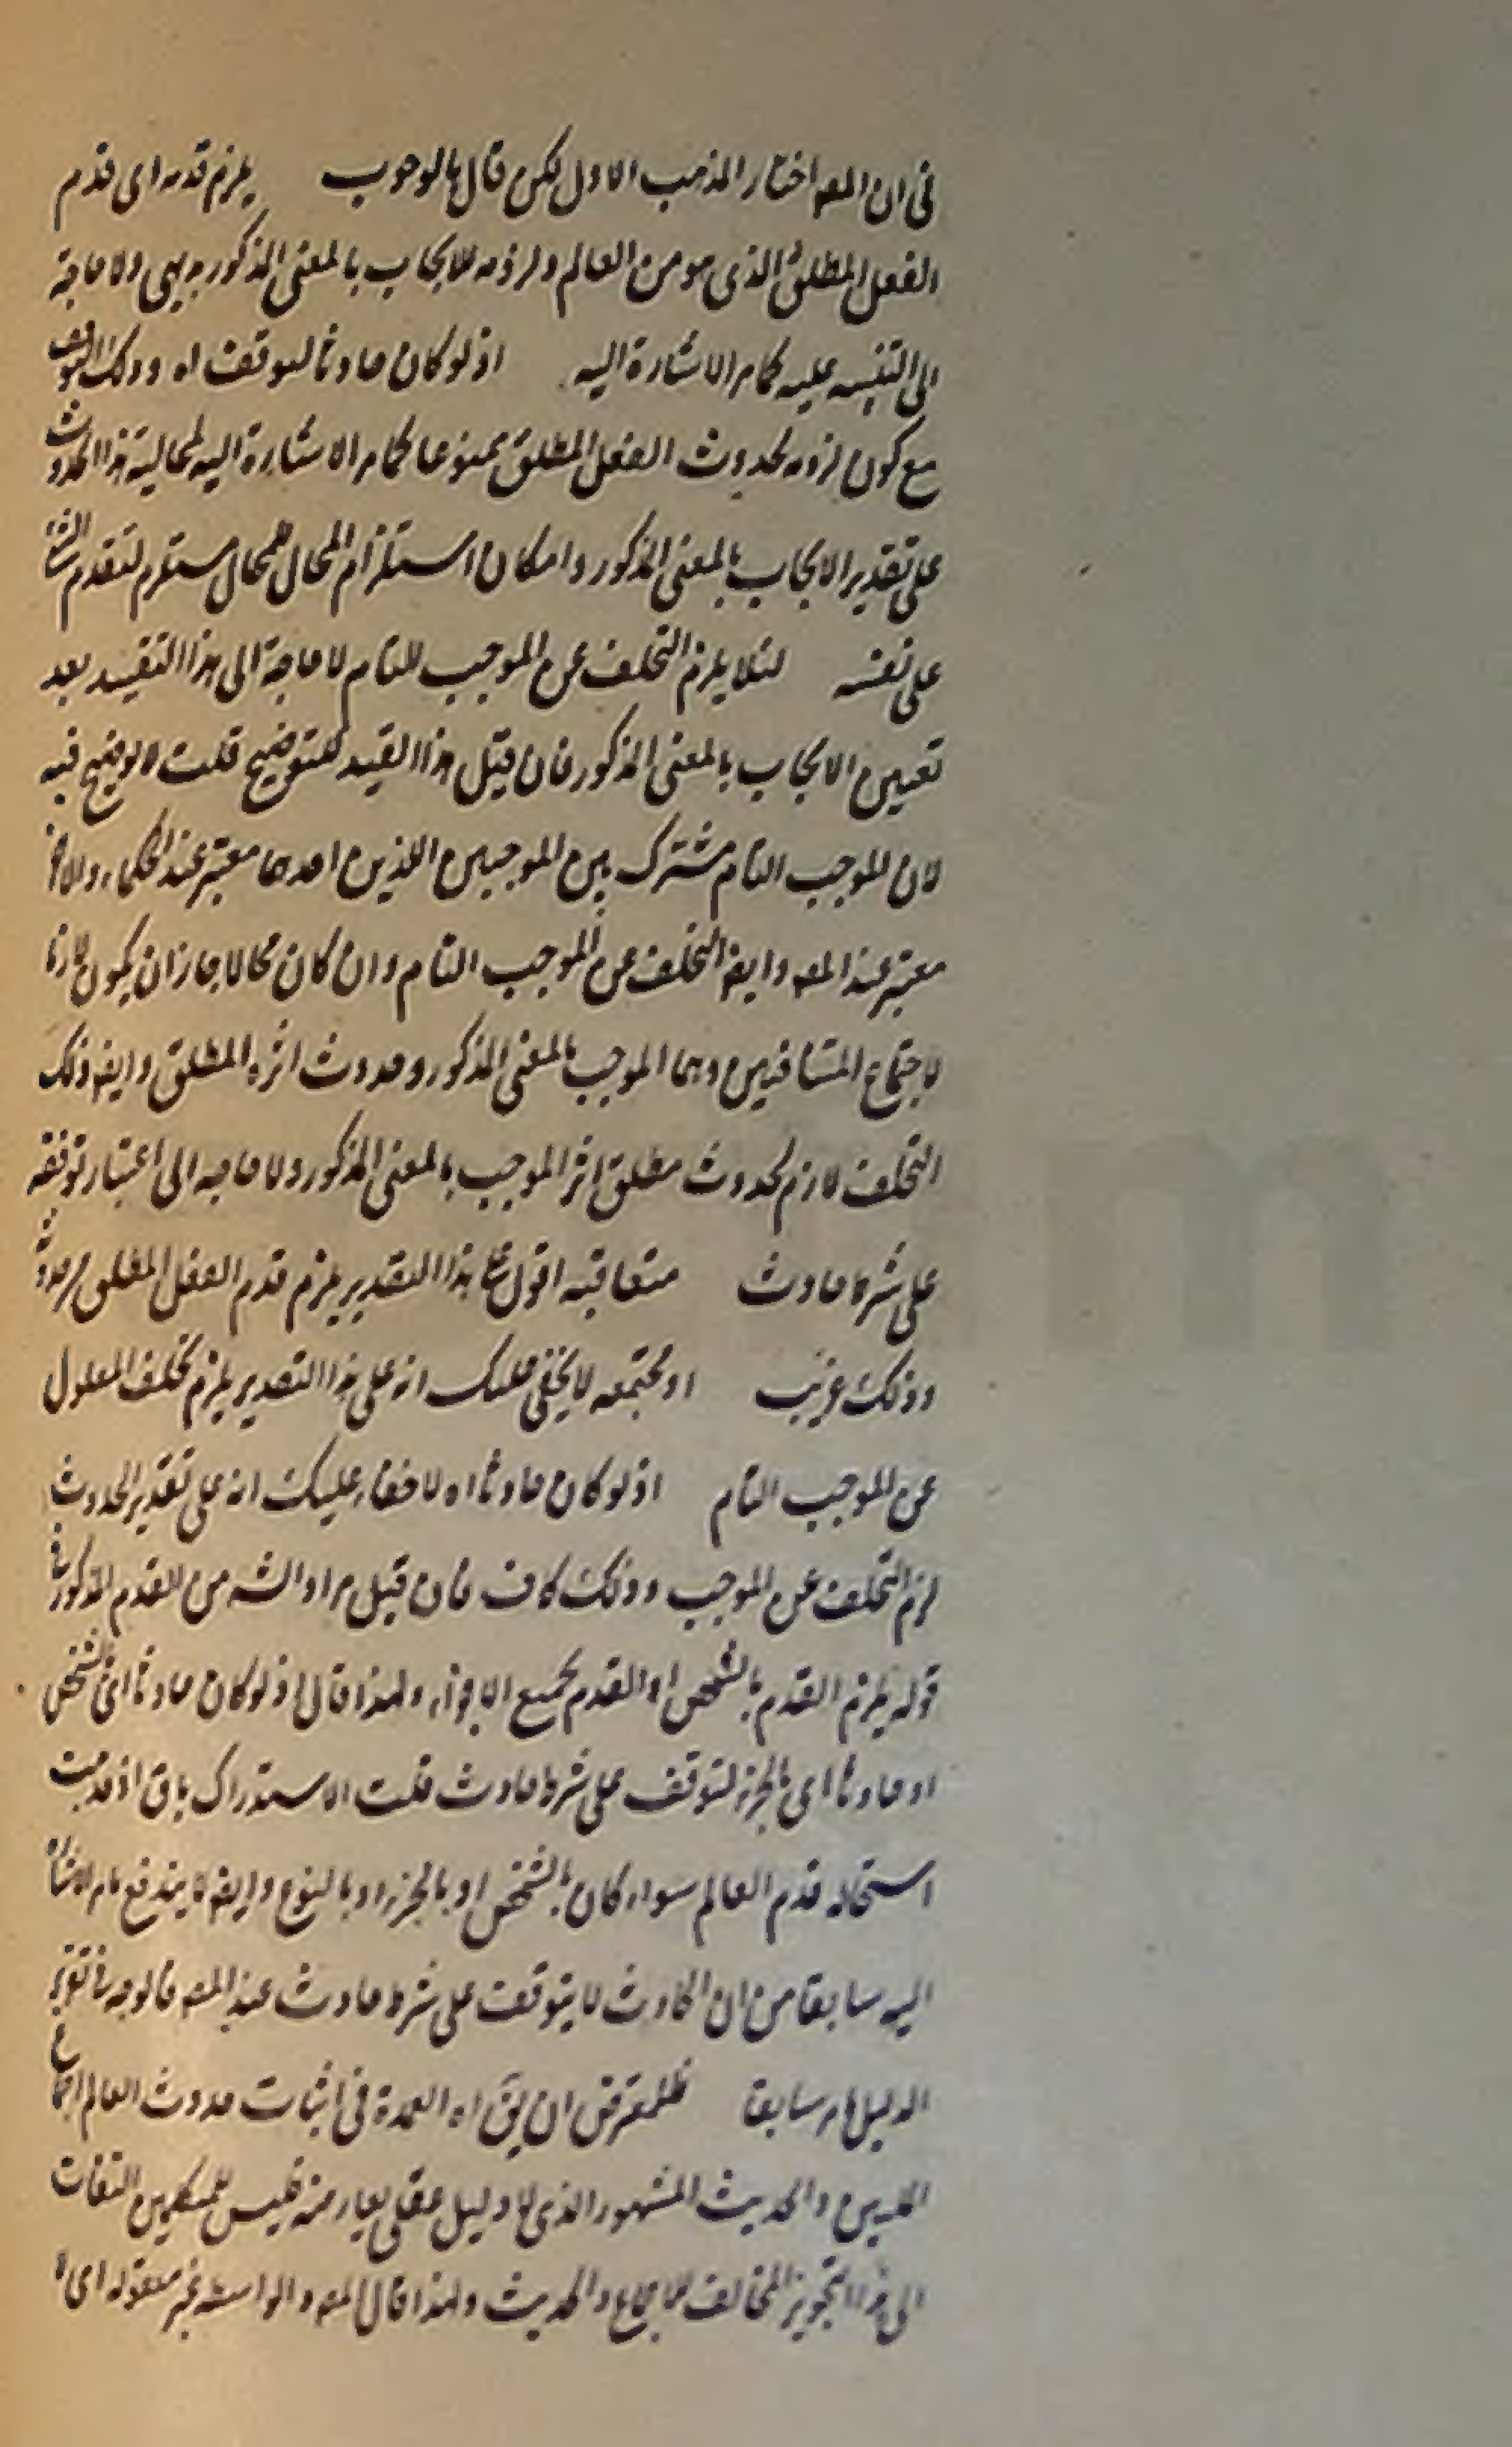 فى ان المصه اختار المذهب الاول لكن قال بالوجوب يلزم قدمه اى قدم
الفعل المطلق الذى هو من العالم ولزومه للايجاب بالمعنى المذكور بديهى ولا حاجة
الى التنبيه عليه كما مر الاشارة اليه اذ لو كان حادثا لتوقف اه وذلك التوقف
مع كون لزومه لحدوث الفعل المطلق ممنوعا كما مر الاشارة اليه لمحالية هذا الحدوث
على تقدير الايجاب بالمعنى المذكور وامكان استلزام المحال للمحال مستلزم لتقدم الشئ
على نفسه لئلا يلزم التخلف عن الموجب التام لا حاجة الى هذا التقييد بعد
تعيين الايجاب بالمعنى المذكور فان قيل هذا القيد للتوضيح قلت لا توضيح فيه
لان الموجب التام مشترك بين الموجبين اللذين احدهما معتبر عند الحكماء والاخر
معتبر عند المصه وايضه التخلف عن الموجب التام وان كان محالا جاز ان يكون لازما
لاجتماع المتنافيين وهما الموجب بالمعنى المذكور وحدوث اثره المطلق وايضه ذلك
التخلف لازم لحدوث مطلق اثر الموجب بالمعنى المذكور ولا حاجه الى اعتبار توقفه
على شرط حادث متعاقبه اقول على هذا التقدير يلزم قدم الفعل المطلق مع حدوثه
وذلك غريب او مجتمعه لا يخفى عليك انه على هذا التقدير يلزم تخلف المعلول
عن الموجب التام اذ لو كان حادثا اه لا خفاء عليك انه على تقدير الحدوث
لزم التخلف عن الموجب وذلك كاف فان قيل مراد الشه من القدم المذكور فى
قوله يلزم القدم بالشخص او القدم بجميع الاجزاء ولهذا قال اذ لو كان حادثا اى بالشخص
او حادثا اى بالجزء لتوقف على شرط حادث قلت الاستدراك باق اذ قد ثبت
استحالة قدم العالم سواء كان بالشخص او بالجزء او بالنوع وايضه لا يندفع ما مر الاشارة
اليه سابقا من ان الحادث لا يتوقف على شرط حادث عند المصه فالوجه فى تقرير
الدليل ما مر سابقا فللمعترض ان يق اه العمدة فى اثبات حدوث العالم اجماع
المليين والحديث المشهور الذى لا دليل عقلى يعارضه فليس للمتكلمين التفات
الى هذا التجويز المخالف للاجماع والحديث ولهذا قال المصه والواسطه غير معقوله اى